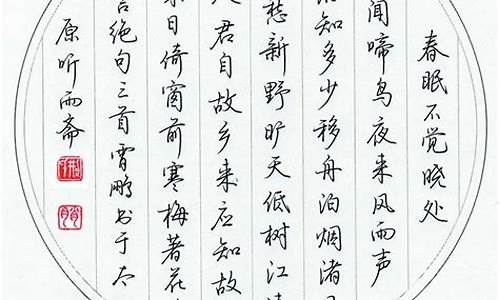 春眠不觉晓处
闻啼鸟夜来风雨声
知多少移舟泊烟渚日
愁新野旷天低树江清
人君自故乡来应知故
来日倚窗前寒梅著花
绝句三首霄鹏书于太
原听雨斋